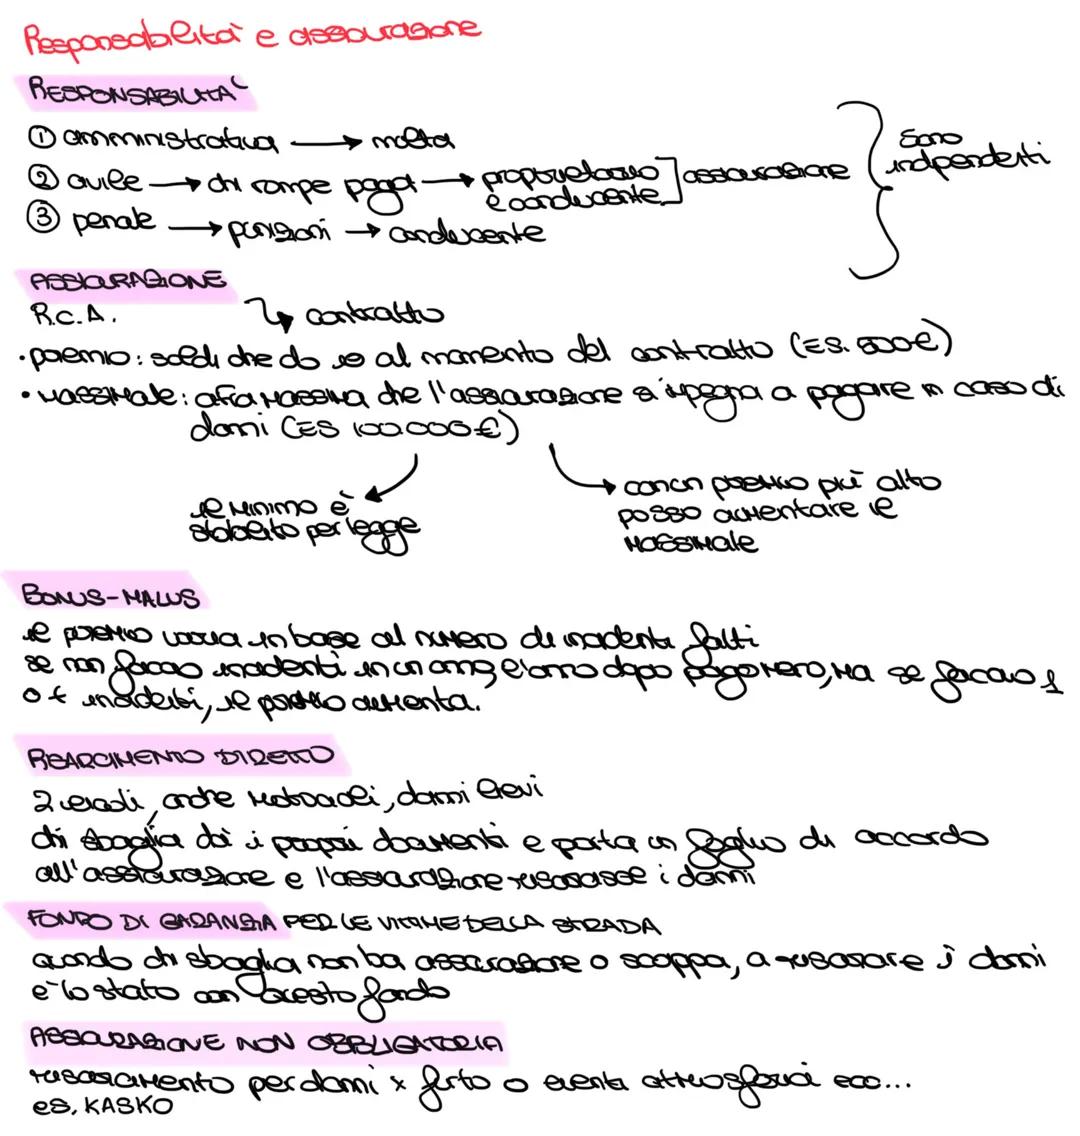 Responsabilità e assicurazione
RESPONSABILITA'
① amministrativa → multa
② civile → chi rompe paga → proprietario e conducente ] assicurazione
③ penale → punizioni → conducente
sono indipendenti
ASSICURAZIONE
R.C.A. ↳ contratto
• premio: soldi che do io al momento del contratto (ES. 500€)
• massimale: cifra massima che l'assicurazione si impegna a pagare in caso di
danni (ES 100.000€)
il minimo è
stabilito per legge
con un premio più alto
posso aumentare il
massimale
BONUS-MALUS
il premio varia in base al numero di incidenti fatti
se non faccio incidenti in un anno, l'anno dopo pago meno, ma se faccio 1
o + incidenti, il premio aumenta.
RISARCIMENTO DIRETTO
2 veicoli, anche motocicli, danni lievi
chi sbaglia dà i propri documenti e porta un foglio di accordo
all'assicurazione e l'assicurazione risarcisce i danni
FONDO DI GARANZIA PER LE VITTIME DELLA STRADA
quando chi sbaglia non ha assicurazione o scappa, a risarcire i danni
è lo stato con questo fondo
ASSICURAZIONE NON OBBLIGATORIA
risarcimento per danni x furto o eventi atmosferici ecc...
es. KASKO